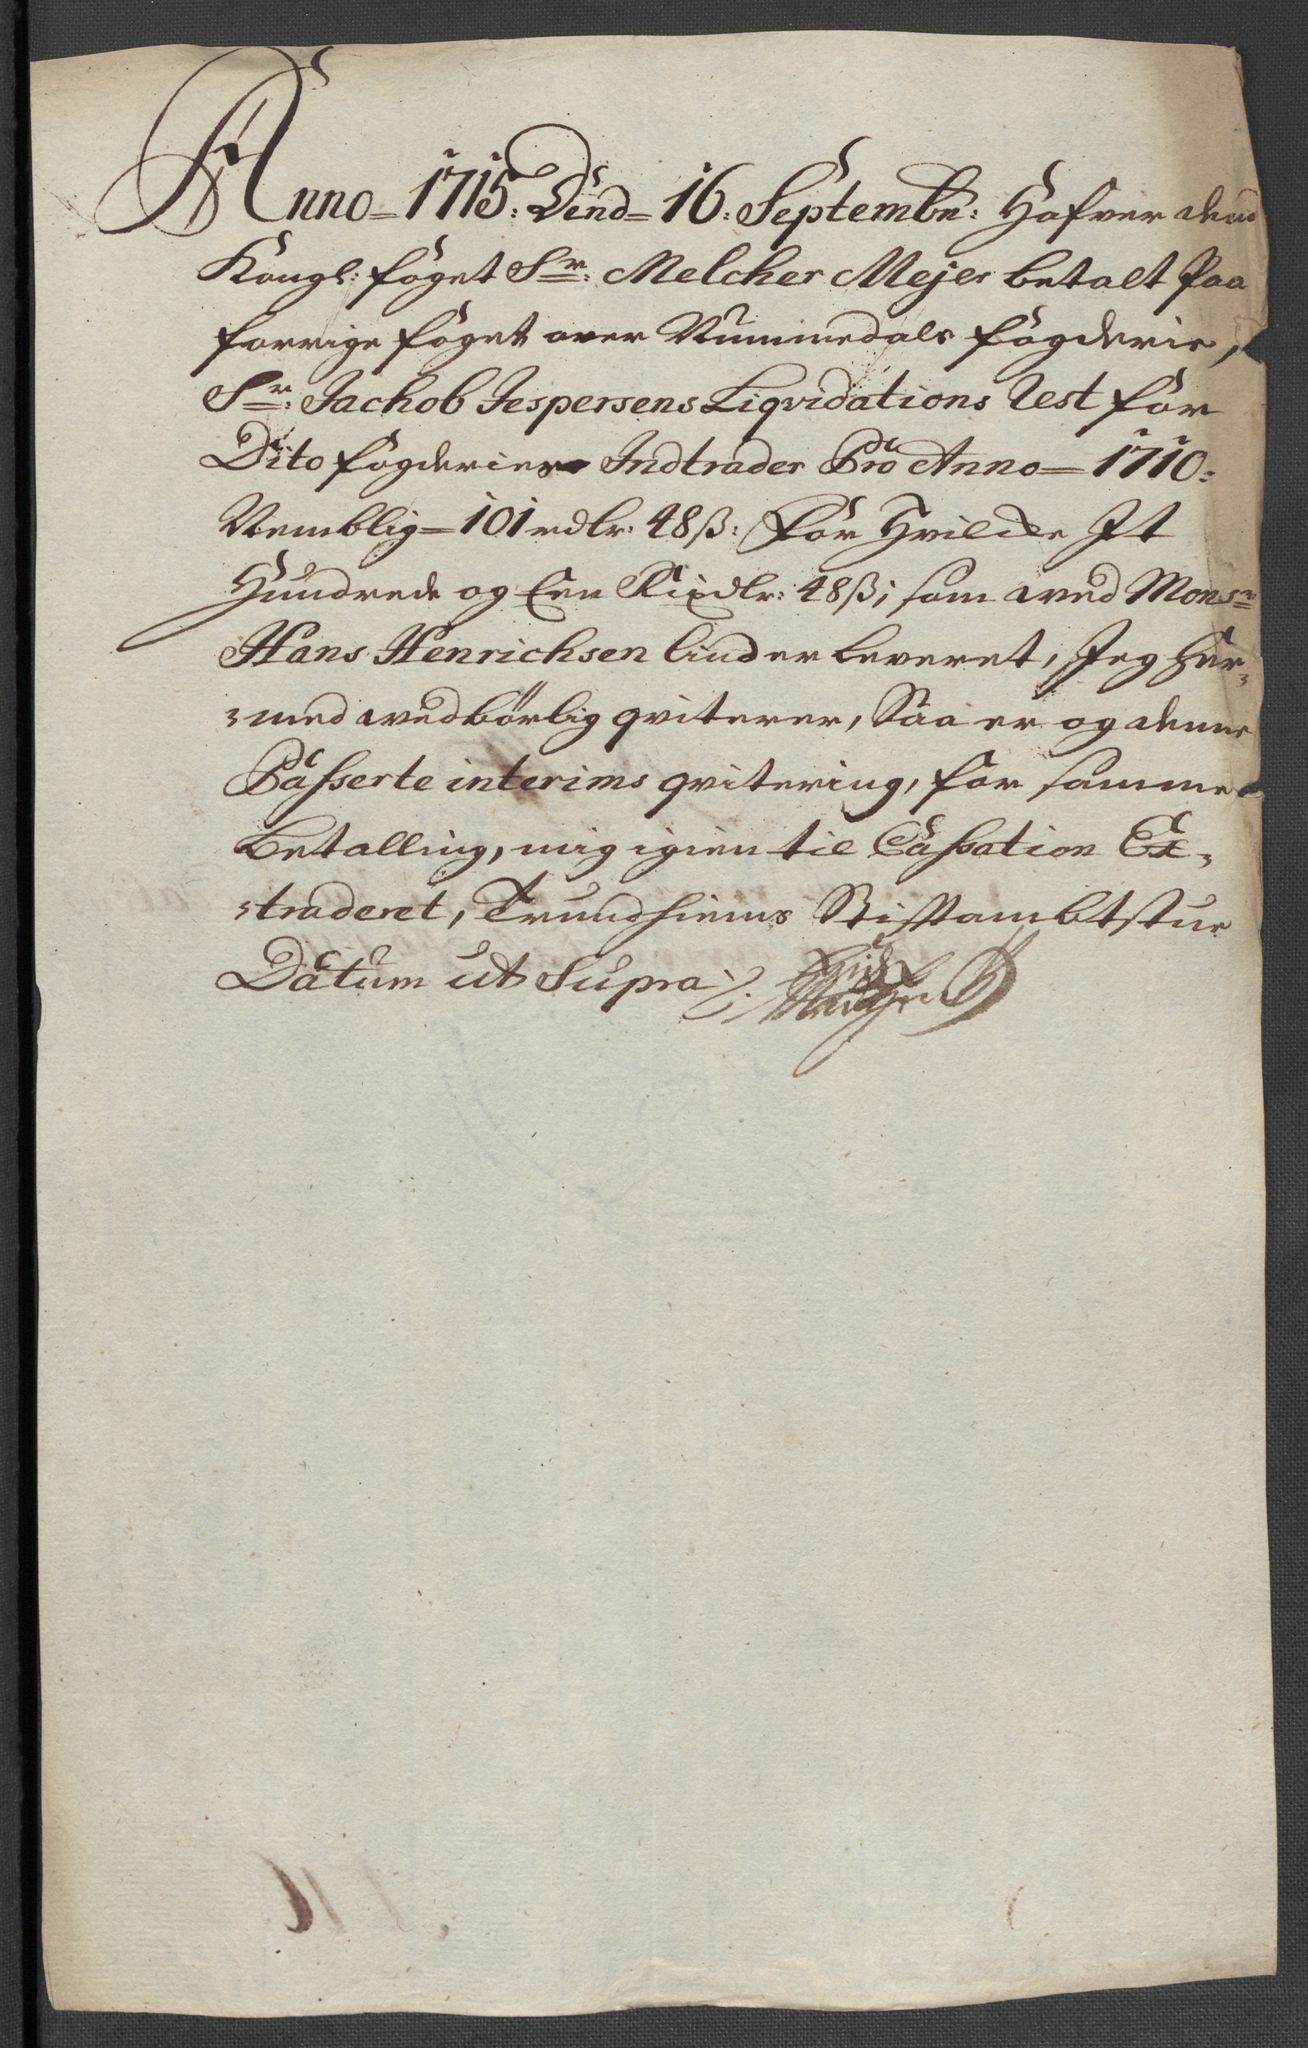 Anno = 1715: Dend = 16: Septembr: Hafver dend
Kongl: foget Sr: Melcher Mejer betalt Paa
forrige foget over Nummedals fogderie,
Sr: Jachob Jespersens Liqvidations Rest for
Dito fogderies Indtrader Pro Anno = 1710:
Nemblig = 101 rdlr: 48 ß: For Hvilcke It
Hundrede og Een Rixdlr: 48 ß; som wed Monsr:
Hans Henrichsen Lind er leveret, Jeg her=
=med wedbörlig qviterer, Saa er og denne
Passerte interims qvitering, for samme
betalling, mig igien til Cassation Ex=
=traderet, Trundhiems Stiftambtstue
Datum ut Supra